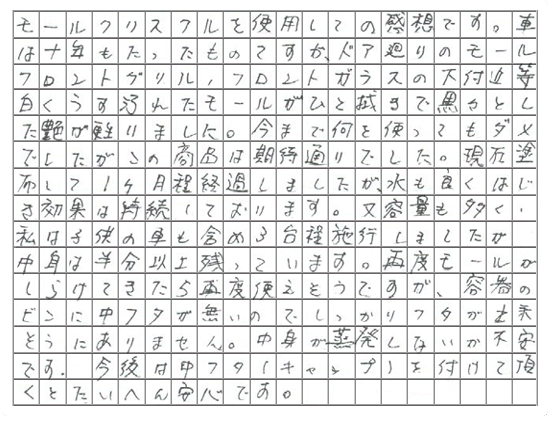 モールクリスタルを使用しての感想です。車
は十年もたったものですが、ドア廻りのモール
フロントグリル、フロントガラスの下付近等
白くうす汚れたモールがひと拭きで黒々とし
た艶が甦りました。今まで何を使ってもダメ
でしたがこの商品は期待通りでした。現在塗
布して1ヶ月程経過しましたが、水も良くはじ
き効果は持続しております。又容量も多く、
私は子供の車も含め3台程施行しましたが
中身は半分以上残っています。再度モールが
しらけてきたら再度使えそうですが、容器の
ビンに中フタが無いのでしっかりフタが出来
そうにありません。中身が蒸発しないか不安
です。今後は中フタ(キャップ)を付けて頂
くとたいへん安心です。